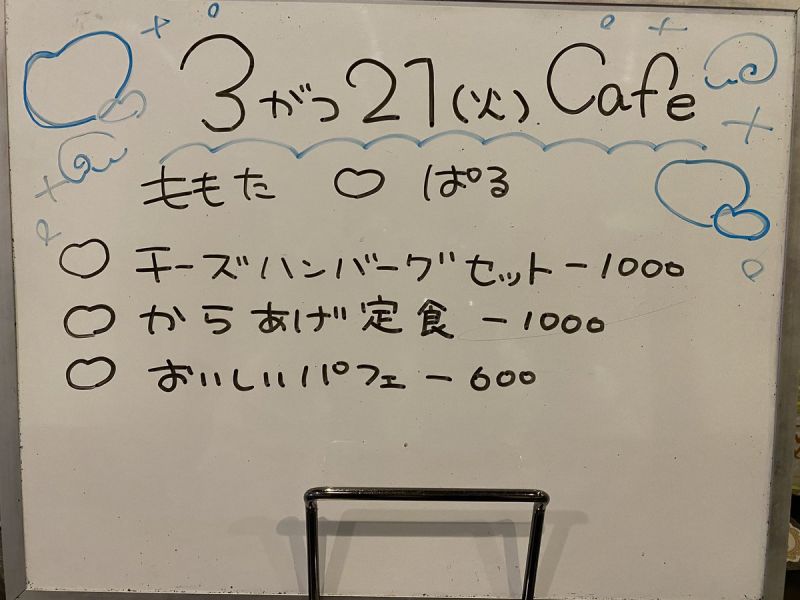 3がつ21(火) Cafe
ももた ♡ ぱる
チーズハンバーグセット-1000
からあげ定食-1000
おいしいパフェ-600